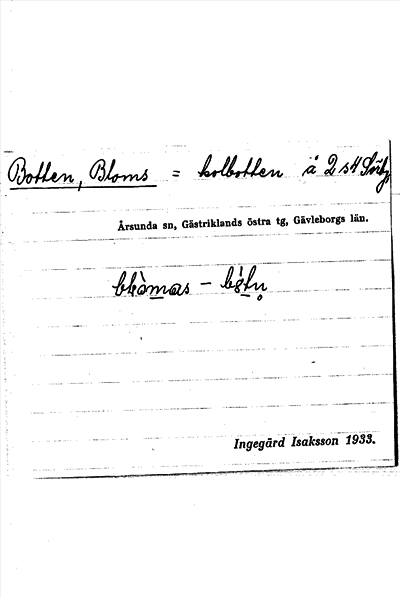 Botten, Bloms = kolbotten å 2 s4 Sörby
Årsunda sn, Gästriklands östra tg, Gävleborgs län.
Ingegärd Isaksson 1933.